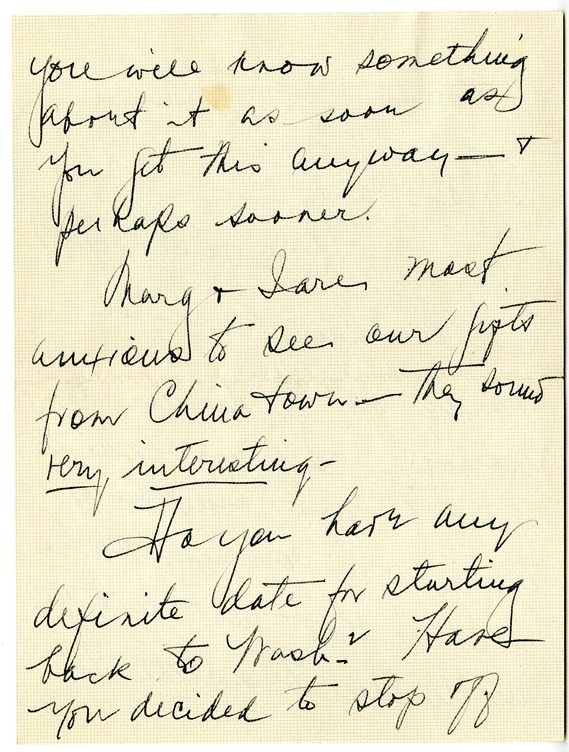 you will know something
about it as soon as
you get this anyway — +
perhaps sooner.
Marg + I are most
anxious to see our gifts
from China town — they sound
very interesting -
Do you have any
definite date for starting
back to Wash.? Have
you decided to stop off